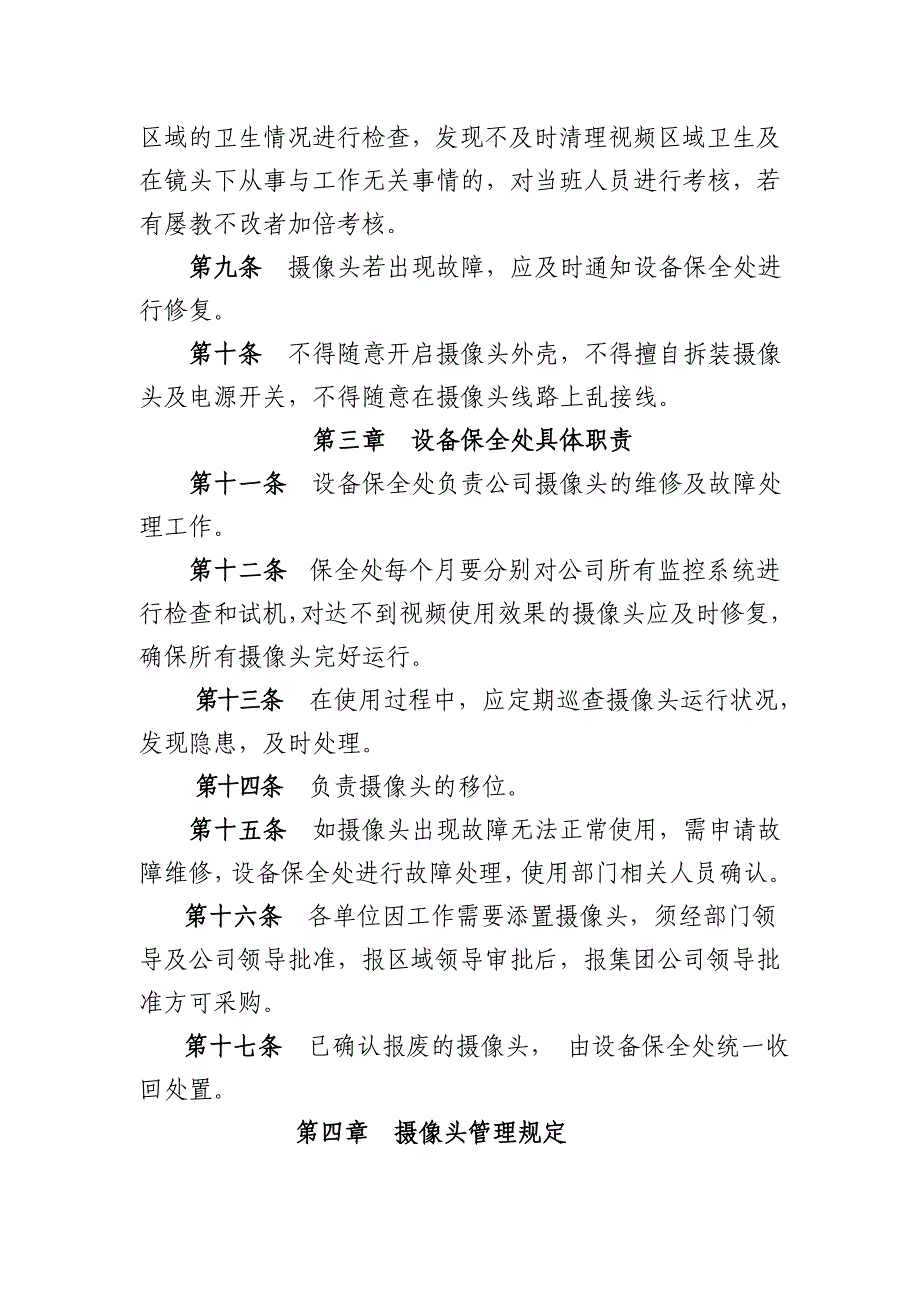 区域的卫生情况进行检查，发现不及时清理视频区域卫生及
在镜头下从事与工作无关事情的，对当班人员进行考核，若
有屡教不改者加倍考核。
第九条　摄像头若出现故障，应及时通知设备保全处进
行修复。
第十条　不得随意开启摄像头外壳，不得擅自拆装摄像
头及电源开关，不得随意在摄像头线路上乱接线。
第三章　设备保全处具体职责
第十一条　设备保全处负责公司摄像头的维修及故障处
理工作。
第十二条　保全处每个月要分别对公司所有监控系统进
行检查和试机，对达不到视频使用效果的摄像头应及时修复，
确保所有摄像头完好运行。
第十三条　在使用过程中，应定期巡查摄像头运行状况，
发现隐患，及时处理。
第十四条　负责摄像头的移位。
第十五条　如摄像头出现故障无法正常使用，需申请故
障维修，设备保全处进行故障处理，使用部门相关人员确认。
第十六条　各单位因工作需要添置摄像头，须经部门领
导及公司领导批准，报区域领导审批后，报集团公司领导批
准方可采购。
第十七条　已确认报废的摄像头， 由设备保全处统一收
回处置。
第四章　摄像头管理规定